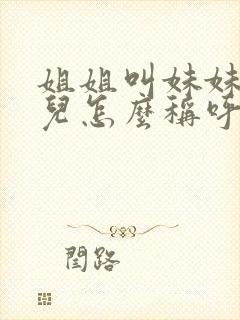 姐姐叫妹妹
兒怎麼稱呼
閨路